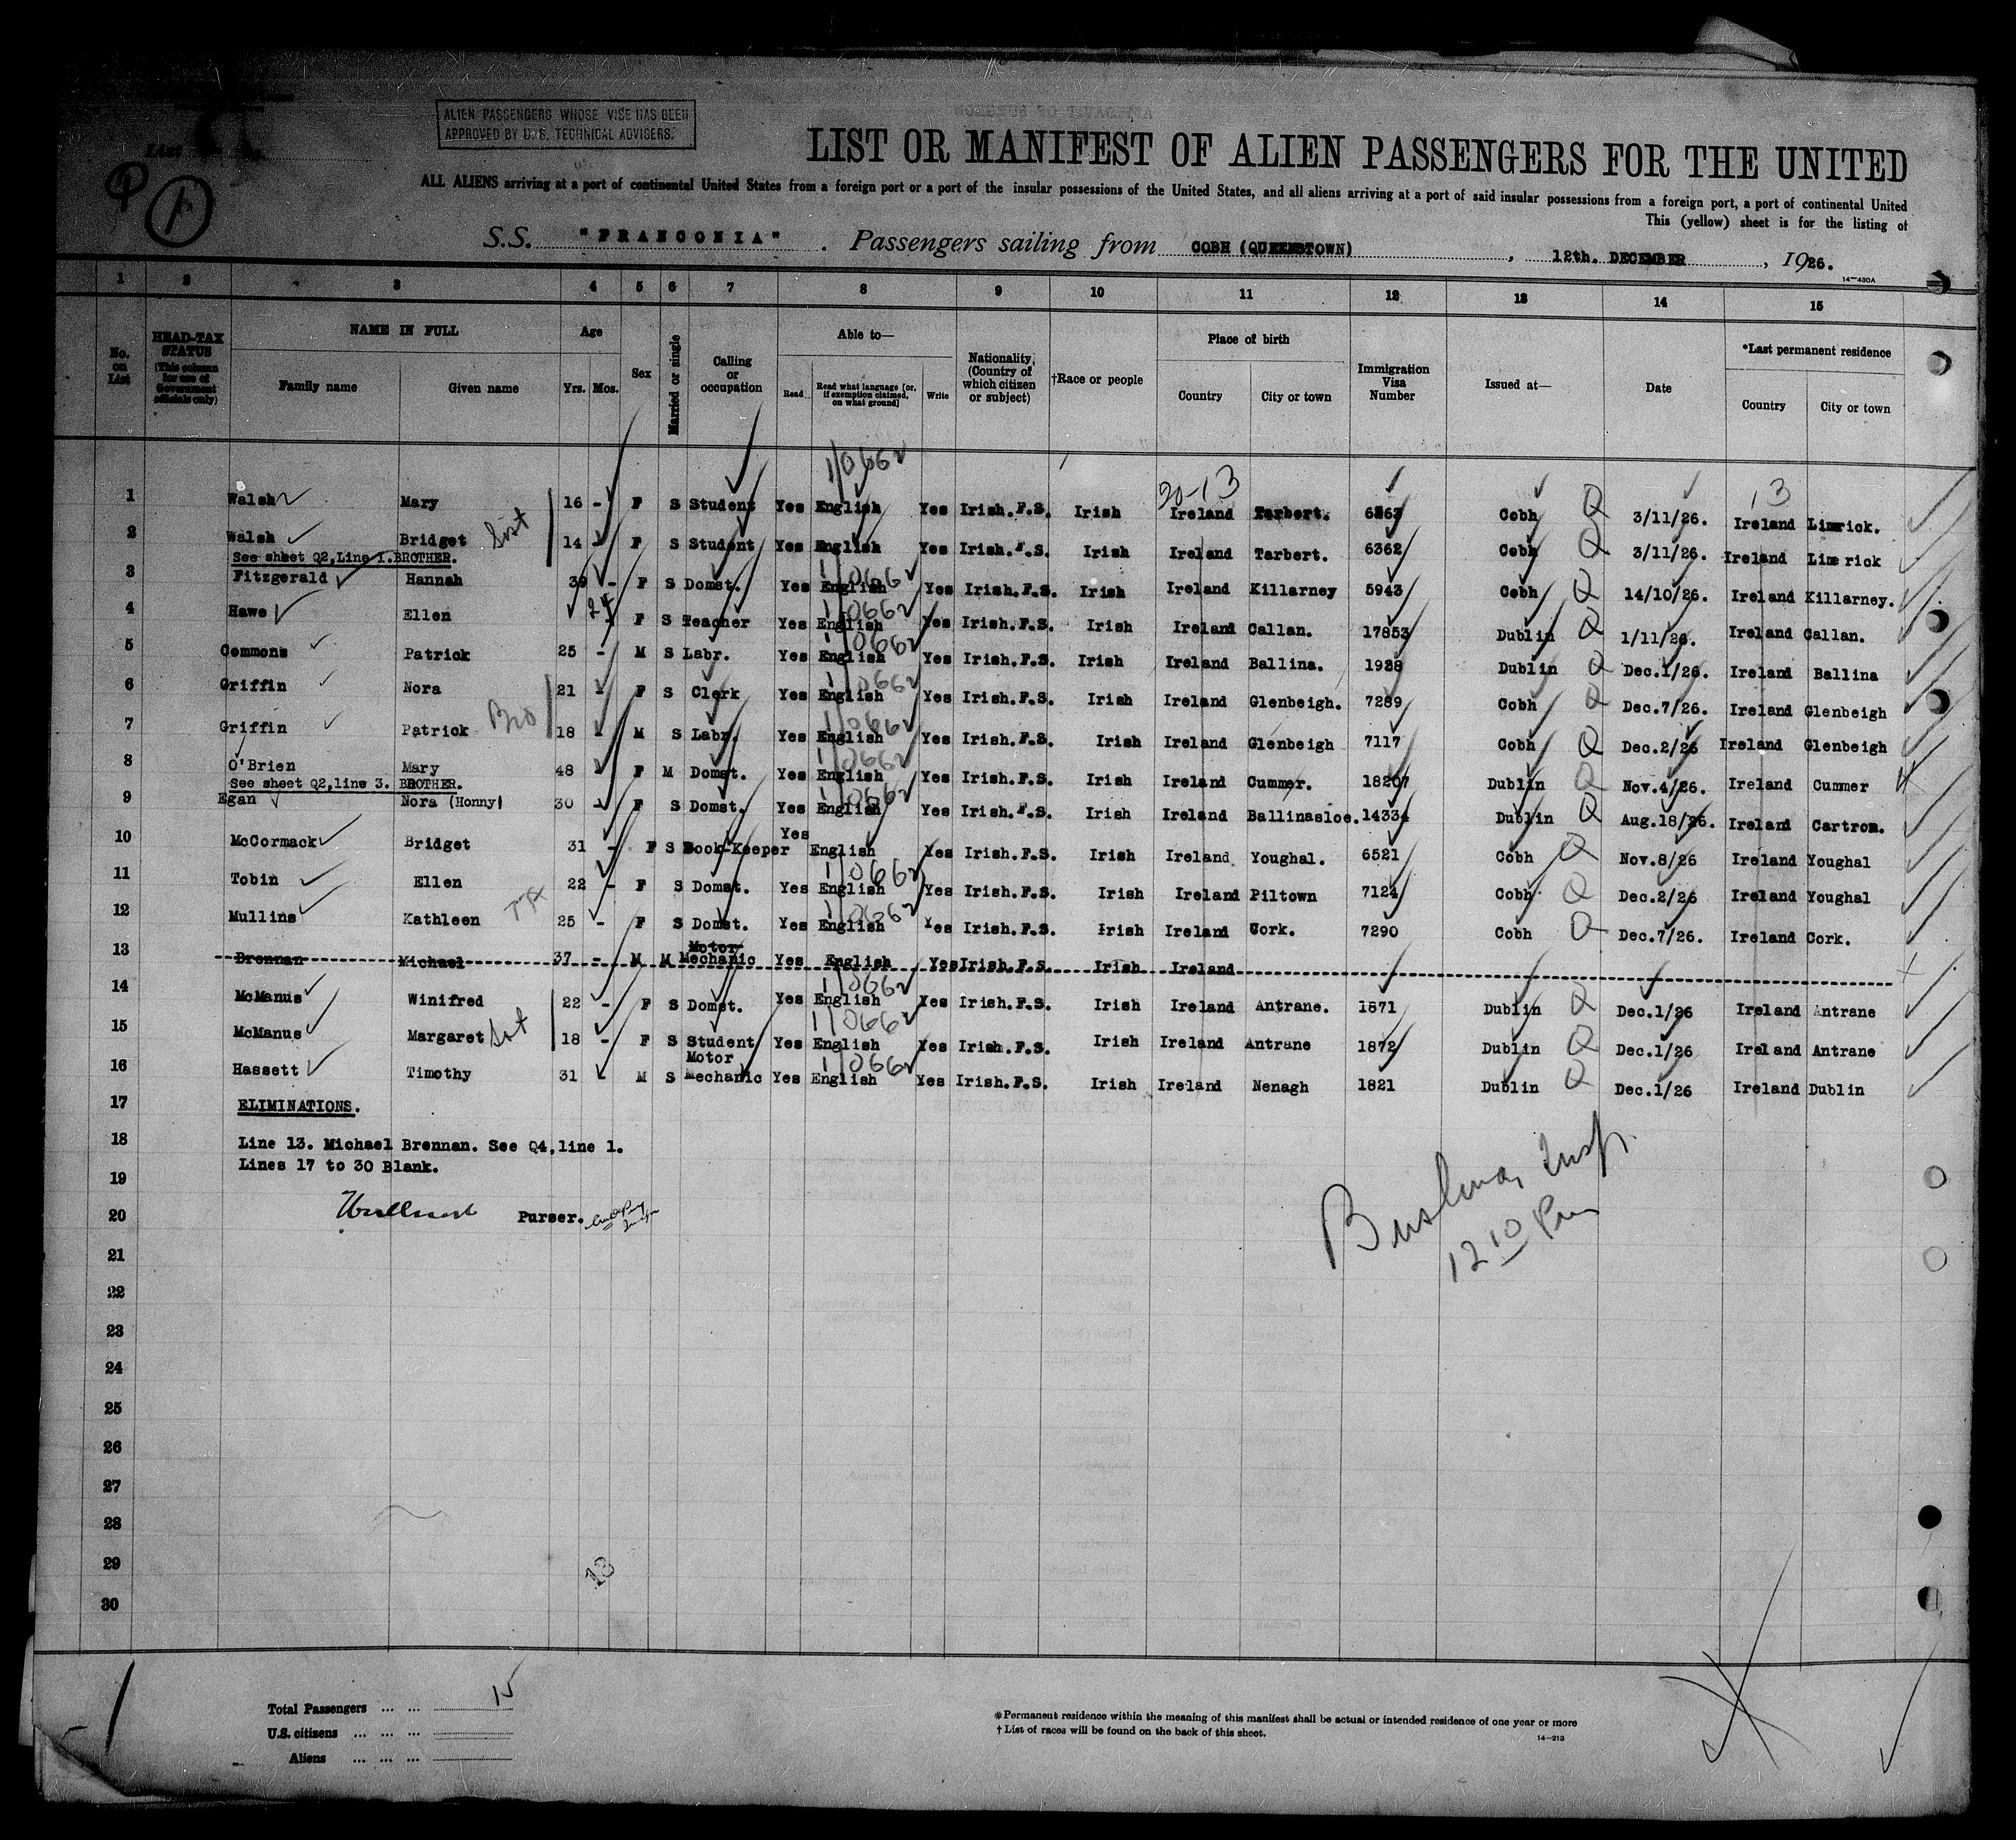 ALIEN PASSENGERS WHOSE VISE HAS BEEN
APPROVED BY U.S. TECHNICAL ADVISERS.
List
LIST OR MANIFEST OF ALIEN PASSENGERS FOR THE UNITED
ALL ALIENS arriving at a port of continental United States from a foreign port or a port of the insular possessions of the United States, and all aliens arriving at a port of said insular possessions from a foreign port, a port of continental United
This (yellow) sheet is for the listing of
S.S. "FRANCONIA". Passengers sailing from COBH (QUEENSTOWN), 12th. DECEMBER, 1926.
14-430A
1 2 3 4 5 6 7 8 9 10 11 12 13 14 15
No. on List
HEAD-TAX STATUS (This column for use of Government officials only)
NAME IN FULL
Family name Given name
Age
Yrs. Mos.
Sex
Married or single
Calling or occupation
Able to—
Read Read what language [or, if exemption claimed, on what ground] Write
Nationality, (Country of which citizen or subject)
†Race or people
Place of birth
Country City or town
Immigration Visa Number
Issued at—
Date
*Last permanent residence
Country City or town
1/0662
20-13
13
1 Walsh Mary 16 - F S Student Yes English Yes Irish.F.S. Irish Ireland Tarbert. 6363 Cobh Q 3/11/26. Ireland Limrick.
Sist
2 Walsh Bridget 14 - F S Student Yes English Yes Irish.F.S. Irish Ireland Tarbert. 6362 Cobh Q 3/11/26. Ireland Limerick
See sheet Q2,Line 1.BROTHER.
3 Fitzgerald Hannah 39 - F S Domst. Yes English Yes Irish.F.S. Irish Ireland Killarney 5943 Cobh Q 14/10/26. Ireland Killarney.
4 Hawe Ellen 24 - F S Teacher Yes English Yes Irish.F.S. Irish Ireland Callan. 17853 Dublin Q 1/11/26. Ireland Callan.
5 Commons Patrick 25 - M S Labr. Yes English Yes Irish.F.S. Irish Ireland Ballina. 1928 Dublin Q Dec.1/26. Ireland Ballina
6 Griffin Nora 21 - F S Clerk Yes English Yes Irish.F.S. Irish Ireland Glenbeigh. 7289 Cobh Q Dec.7/26. Ireland Glenbeigh
Bro
7 Griffin Patrick 18 - M S Labr. Yes English Yes Irish.F.S. Irish Ireland Glenbeigh 7117 Cobh Q Dec.2/26 Ireland Glenbeigh
8 O'Brien Mary 48 - F M Domst. Yes English Yes Irish.F.S. Irish Ireland Cummer. 18207 Dublin Q Nov.4/26. Ireland Cummer
See sheet Q2,line 3. BROTHER.
9 Egan Nora (Honny) 30 - F S Domst. Yes English Yes Irish.F.S. Irish Ireland Ballinasloe. 14334 Dublin Q Aug.18/26. Ireland Cartrom.
10 McCormack Bridget 31 - F S Book-Keeper Yes English Yes Irish.F.S. Irish Ireland Youghal. 6521 Cobh Q Nov.8/26 Ireland Youghal
11 Tobin Ellen 22 - F S Domst. Yes English Yes Irish.F.S. Irish Ireland Piltown 7124 Cobh Q Dec.2/26 Ireland Youghal
12 Mullins Kathleen 25 - F S Domst. Yes English Yes Irish.F.S. Irish Ireland Cork. 7290 Cobh Q Dec.7/26. Ireland Cork.
13 Brennan Michael 37 - M M Motor Mechanic Yes English Yes Irish.F.S. Irish Ireland
14 McManus Winifred 22 - F S Domst. Yes English Yes Irish.F.S. Irish Ireland Antrane. 1871 Dublin Q Dec.1/26 Ireland Antrane
15 McManus Margaret Sist 18 - F S Student Yes English Yes Irish.F.S. Irish Ireland Antrane 1872 Dublin Q Dec.1/26 Ireland Antrane
16 Hassett Timothy 31 M S Motor Mechanic Yes English Yes Irish.F.S. Irish Ireland Nenagh 1821 Dublin Q Dec.1/26 Ireland Dublin
17 ELIMINATIONS.
18 Line 13. Michael Brennan. See Q4,line 1.
Lines 17 to 30 Blank.
19
20 Purser.
Insp.
12 10 Pm
21
22
23
24
25
26
27
28
29
13
30
Total Passengers ... ... 15
U.S. citizens ... ... ...
Aliens ... ... ...
*Permanent residence within the meaning of this manifest shall be actual or intended residence of one year or more
† List of races will be found on the back of this sheet.
14-213